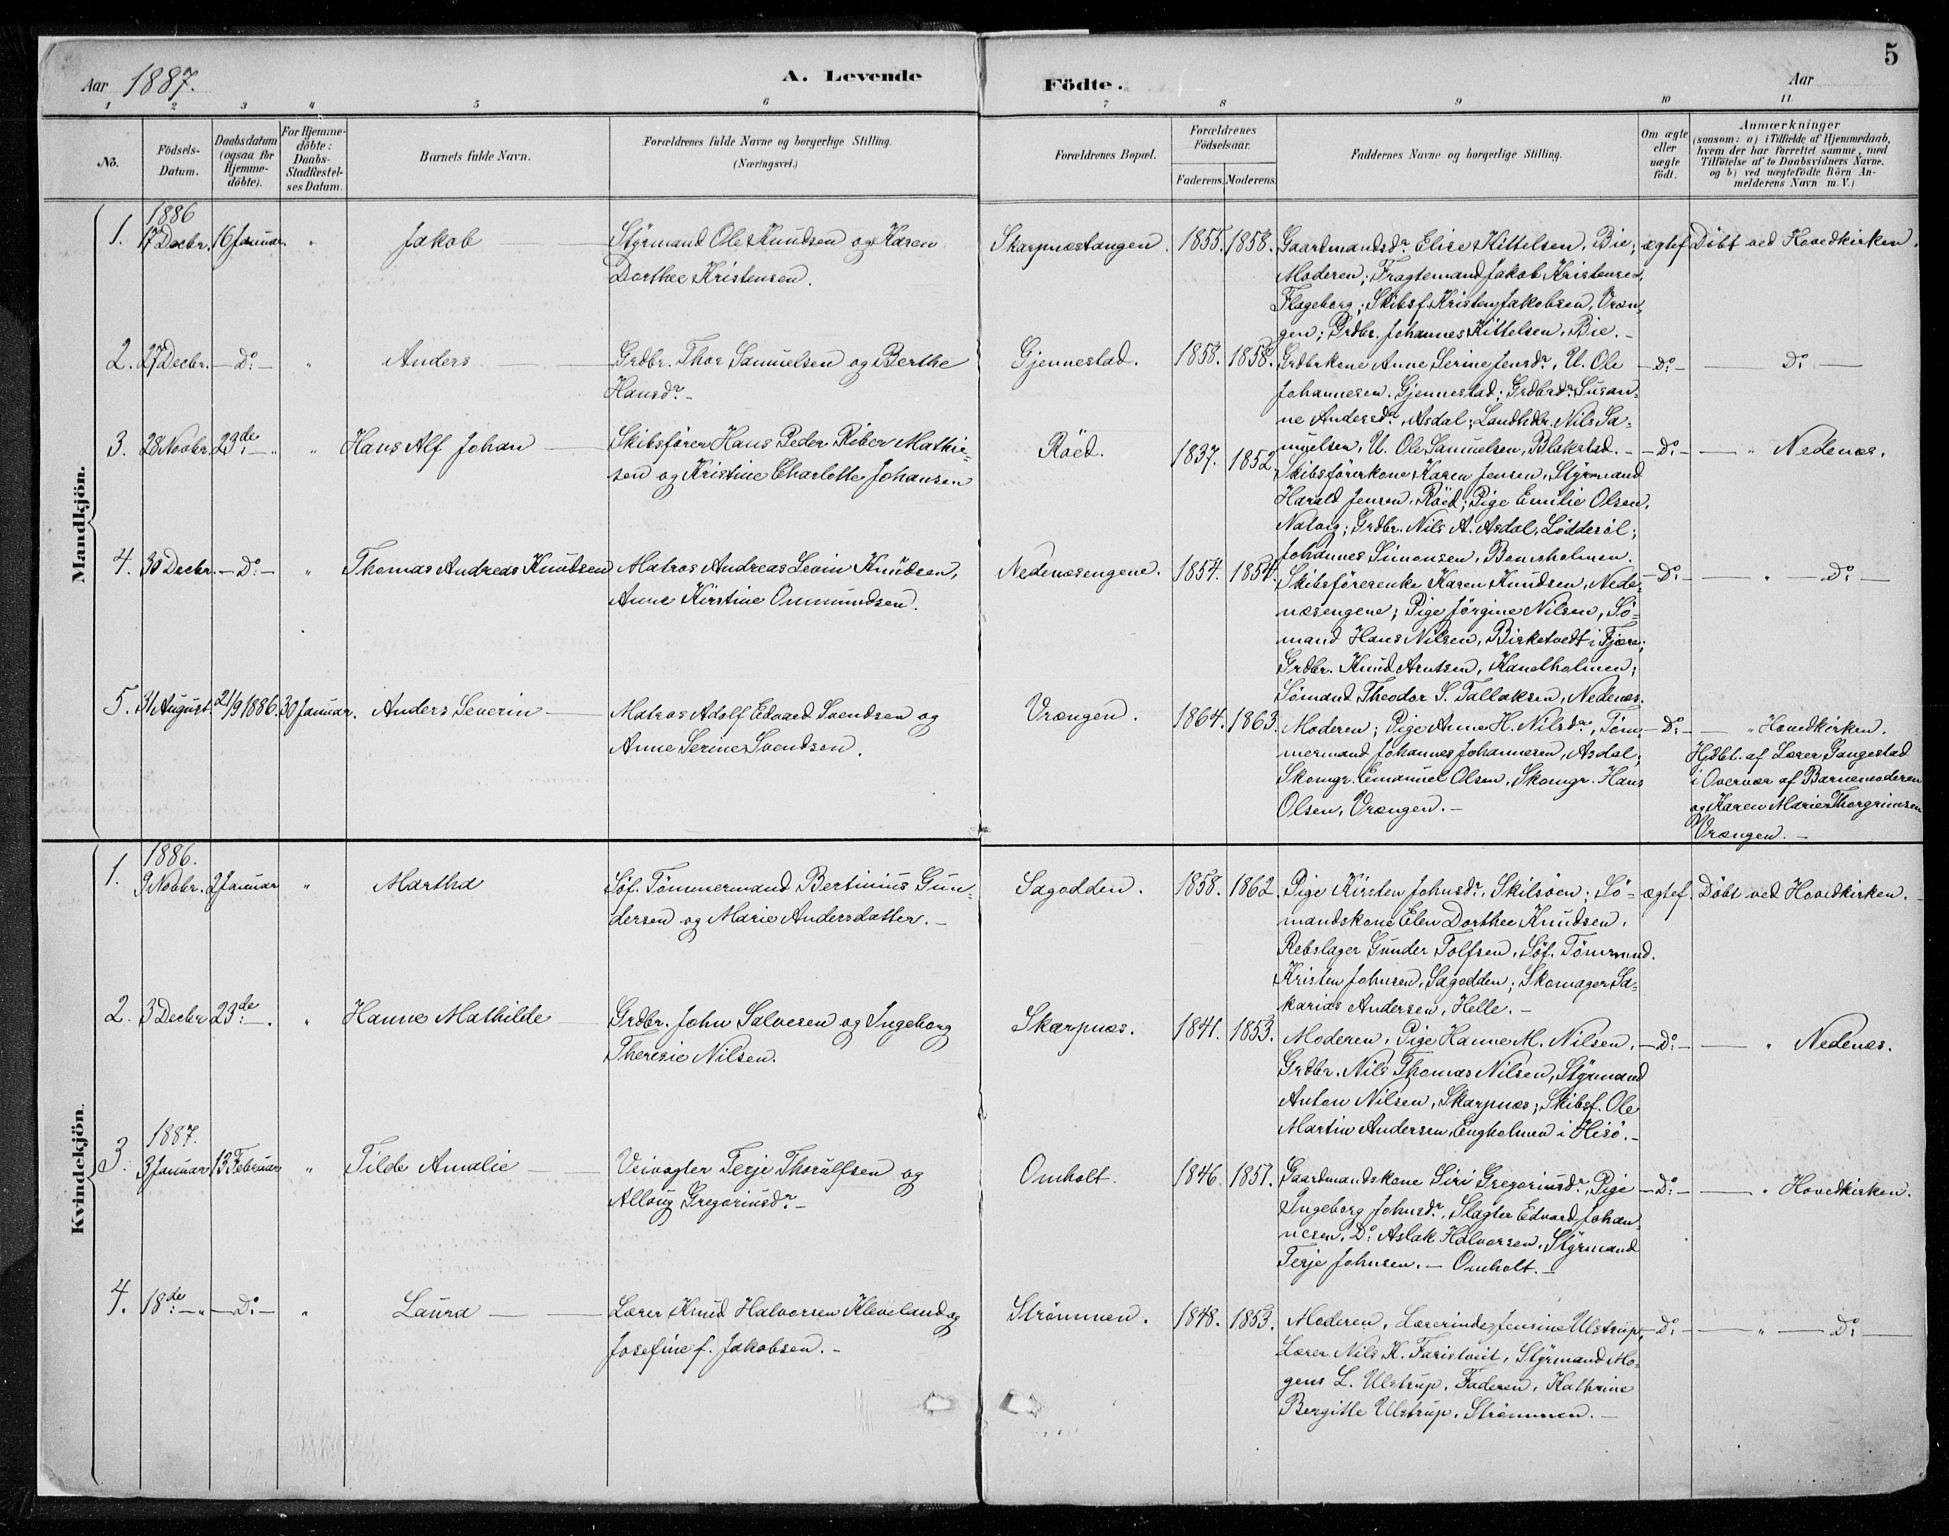 5
Aar 1887.
A. Levende Födte.
Aar
1 2 3 4 5 6 7 8 9 10 11
No.
Födsels-
Datum.
Daabsdatum
(ogsaa for
Hjemme-
döbte).
For Hjemme-
döbte:
Daabs-
Stadfæstel-
ses Datum.
Barnets fulde Navn.
Forældrenes fulde Navne og borgerlige Stilling.
(Næringsvei.)
Forældrenes Bopæl.
Forældrenes
Födselsaar.
Faderens. Moderens.
Faddernes Navne og borgerlige Stilling.
Om ægte
eller
uægte
födt.
Anmærkninger
(saasom: a) i Tilfælde af Hjemmedaab,
hvem der har forrettet samme, med
Tilföielse af to Daabsvidners Navne,
og b) ved uægtefödte Börn An-
melderens Navn m. V.)
Mandkjön.
1886
1. 17 Decbr. 16 Januar. " Jakob
Styrmand Ole Knudsen og Karen
Dorthee Kristensen.
Skarpnæstangen. 1855. 1858.
Gaardmandsdr. Elise Kittelsen, Bie;
Moderen; Fragtemand Jakob Kristensen,
Flageborg; Skibsf. Kristen Jakobsen, Vræn-
gen; Grdbr. Johannes Kittelsen, Bie.
ægtef. Döbt ved Hovedkirken.
2. 27 Decbr. - Do - " Anders
Grdbr. Thor Samuelsen og Berthe
Hansdr.
Gjennestad. 1858. 1858.
Grdbrkone Anne Serine Jensdr, U. Ole
Johannesen, Gjennestad; Grdbrdr. Susan-
ne Andersdr, Asdal; Landhdr. Nils Sa-
muelsen, U. Ole Samuelsen, Blakstad.
- Do - - Do -
3. 28 Novbr. 23de - " " Hans Alf Johan
Skibsförer Hans Peder Riber Mathie-
sen og Kristine Charlotte Johansen
Röed. 1837. 1852.
Skibsförerkone Karen Jensen, Styrmand
Harald Jensen, Röed; Pige Emilie Olsen,
Natvig; Grdbr. Nils A. Asdal, Löddesöl;
Johannes Simonsen, Bomsholmen.
- Do - - " Nedenæs.
4. 30 Decbr. - Do - " Thomas Andreas Knutsen
Matros Andreas Severin Knudsen,
Anne Kirstine Ommundsen.
Nedenæsengene. 1854. 1854.
Skibsförerenke Karen Knudsen, Nede-
næsengene; Pige Jörgine Nilsen, Sö-
mand Hans Nilsen, Birketvedt i Fjære;
Grdbr. Knud Arntsen, Kanelholmen;
Sömand Theodor S. Tallaksen, Nedenæs.
- Do - - " - Do -
5. 31 August. 21/9 1886. 30 Januar. Anders Severin
Matros Adolf Edvard Svendsen og
Anne Serine Svendsen.
Vrængen. 1864. 1863.
Moderen; Pige Anne H. Nilsdr, Töm-
mermand Johannes Johannesen, Asdal;
Skomgr. Emanuel Olsen, Skomgr. Hans
Olsen, Vrængen. -
- Do - - " Hovedkirken.
Hjdbt. af Lærer Gangestad
i Overvær af Barnemoderen
og Karen Marie Thorgrimsen
Vrængen. -
Kvindekjön.
1886.
1. 9 Novbr. 2 Januar " Martha
Söf. Tömmermand Bertinius Gun-
dersen og Marie Andersdatter. -
Sagodden. 1858. 1862.
Pige Kirsten Johnsdr, Skilsöen; Sö-
mandskone Elen Dorthee Knudsen,
Rebslager Gunder Tolfsen, Söf. Tömrmnd.
Kristen Johnsen, Sagodden; Skomager Sa-
karias Andersen, Helle. -
ægtef. Döbt ved Hovedkirken. -
2. 3 Decbr 23de - " " Hanne Mathilde
Grdbr. John Salvesen og Ingeborg
Theresie Nilsen.
Skarpnæs. 1841. 1853.
Moderen, Pige Hanne M. Nilsen,
Grdbr. Nils Thomas Nilsen, Styrmand
Anton Nilsen, Skarpnæs; Skibsf. Ole
Martin Andersen, Engholmen i Hisö. -
- Do - - " Nedenæs.
1887.
3. 3 Januar 13 Februar " Tilde Amalie
Veivogter Terje Thorulfsen og
Alloug Gregoriusdr -
Omholt. 1846. 1851.
Gaardmandskone Siri Gregoriusdr, Pige
Ingeborg Johnsdr, Slagter Edvard Johan-
nesen, Do Aslak Halvorsen, Styrmand
Terje Johnsen. - Omholt. -
- Do - - " Hovedkirken.
4. 18de - " - Do - " Laura
Lærer Knud Halvorsen Kleveland og
Josefine f. Jakobsen. -
Strömmen. 1848. 1853.
Moderen, Lærerinde Jensine Ulstrup,
Lærer Nils K. Faristveit, Styrmand Mo-
gens L. Ulstrup, Faderen, Kathrine
Bergitte Ulstrup, Strömmen. -
- Do - - " - Do -